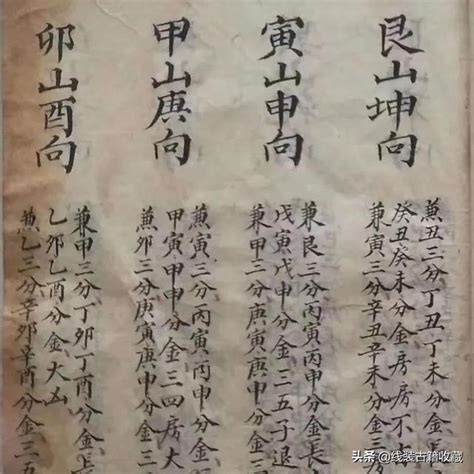 艮山坤向
兼丑三分丁丑丁未分金長
癸丑癸未分金房房不
兼寅三分辛丑辛未分金
寅山申向
兼艮三分丙寅丙申分金長
戊寅戊申分金三五子退
兼甲三分庚寅庚申分金
甲山庚向
兼寅三分丙寅丙申分金
甲寅甲申分金三四房大
兼卯三分庚寅庚申分金
卯山酉向
兼甲三分丁卯丁酉分金長
乙卯乙酉分金大凶
兼乙三分辛卯辛酉分金三
头条 @线装古籍收藏